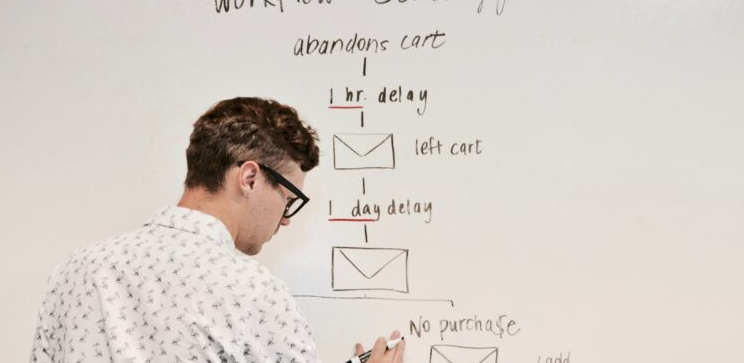 abandons cart
1 hr. delay
left cart
1 day delay
No purcha$e